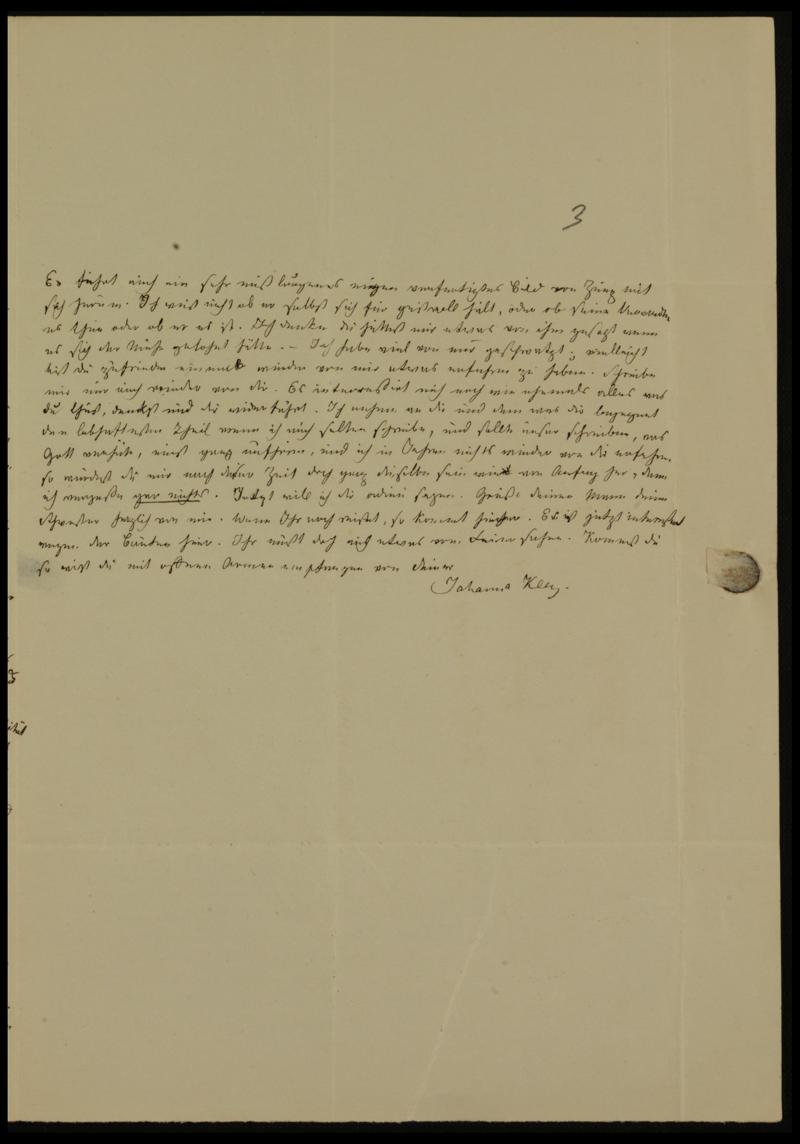 3
Er führt auch ein sehr mißlungenes eigen verfertigtes Bild von Zunz mit
sich herum. Ich weiß nicht ob er selbst sich für geistvoll hält, oder ob seine
es thun oder ob er es ist. Ich denke du hättest mir etwas von ihm gesagt wenn
es sich der Mühe gelohnt hätte. – Ich habe viel von mir geschwatzt; vielleicht
bist du zufrieden einmal wieder von mir etwas erfahren zu haben. Schreibe
mir nur auch wieder von dir. Es interessirt mich noch wie ehemals alles was
du thust, denkst und dir widerfährt. Ich nehme an dir und dem was dir begegnet
den lebhaftesten Theil wenn ich auch selten schreibe, und sollte unser schreiben, was
Gott verhüte, einst ganz aufhören, und ich in Jahren nichts wieder von dir erfahren,
so würdest du mir nach dieser Zeit doch ganz dieselbe sein wie von Anfang her, denn
ich vergesse gar nichts. Jetzt will ich dir adieu sagen. Grüße deinen Mann deine
Schwester herzlich von mir. Wenn Ihr noch reist, so kommt hierher. Es ist jetzt interessant
wegen der Bauten hier. Ihr müßt doch auch etwas von sehen. Kommst du
so wirst du mit offenen Armen empfangen von deiner
Johanna